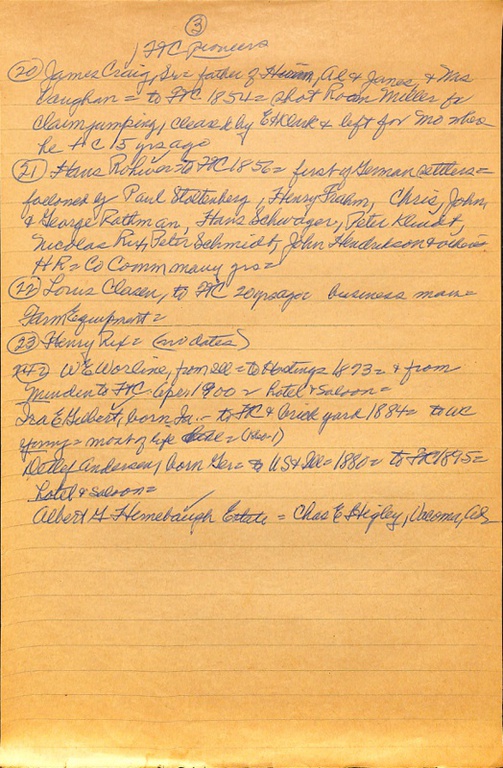 (3)
FtC pioneers
(20) James Craig, Sr = father of Hiram, Al & James & Mrs
Vaughan = to FtC 1854 = shot Miller for
claim jumping, cleared by & left for Mo
he 15 yrs ago
(21) Hans Rohwer to FtC 1856 = first of German settlers =
followed by Paul Stoltenberg, Henry Frahm, Chris, John,
& George Rathman, Hans Schwager, Peter Kluidt,
Nicolas Rix, Peter Schmidt, John Hendrickson & others
HR = Co Comm many yrs =
(22) Louis Clasen, to FtC 20 yrs ago business man =
Farm Equipment =
(23) Henry Rix = (no dates)
W E Worline, from Ill = to Hastings 1873 = & from
Minden to FtC 1900 = hotel & saloon =
Ira E Gilbert, born Ia. - to FtC & brick yard 1884 = to
= most of life
Detlef Anderson, born Ger = to US & Ill = 1880 = to FtC 1895 =
hotel & saloon =
Albert G Hemebaugh Estate = Chas E Hegley,